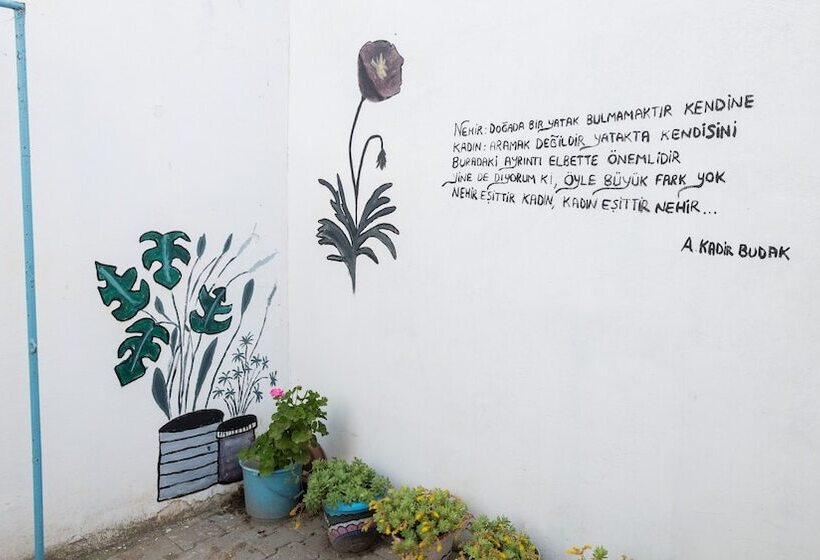 NEHİR: DOĞADA BİR YATAK BULMAMAKTIR KENDİNE
KADIN: ARAMAK DEĞİLDİR YATAKTA KENDİSİNİ
BURADAKİ AYRINTI ELBETTE ÖNEMLİDİR
YİNE DE DİYORUM Kİ, ÖYLE BÜYÜK FARK YOK
NEHİR EŞİTTİR KADIN, KADIN EŞİTTİR NEHİR...
A. KADİR BUDAK